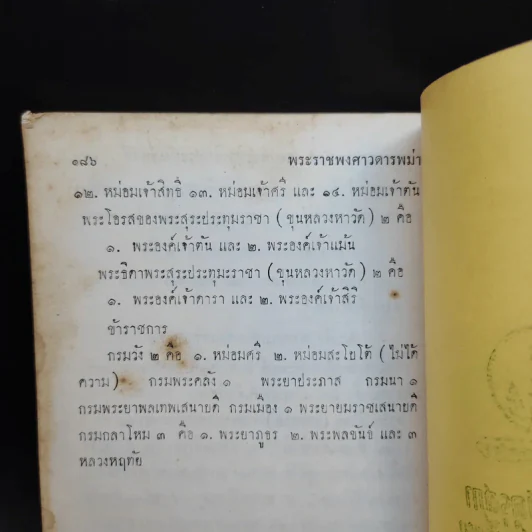 ๑๘๖ พระราชพงศาวดารพม่า
๑๒. หม่อมเจ้าสิทธิ์ ๑๓. หม่อมเจ้าศรี และ ๑๔. หม่อมเจ้าตัน
พระโอรสของพระสุระประทุมราชา (ขุนหลวงหาวัด) ๒ คือ
๑. พระองค์เจ้าตัน และ ๒. พระองค์เจ้าแม้น
พระธิดาพระสุระประทุมะราชา (ขุนหลวงหาวัด) ๒ คือ
๑. พระองค์เจ้าดารา และ ๒. พระองค์เจ้าสิริ
ข้าราชการ
กรมวัง ๒ คือ ๑. หม่อมศรี ๒. หม่อมสะโยโต๊ (ไม่ได้
ความ) กรมพระคลัง ๑ พระยาประภาส กรมนา ๑
กรมพระยาพลเทพเสนาบดี กรมเมือง ๑ พระยายมราชเสนาบดี
กรมกลาโหม ๓ คือ ๑. พระยาภูธร ๒. พระพลขันธ์ และ ๓
หลวงหฤทัย